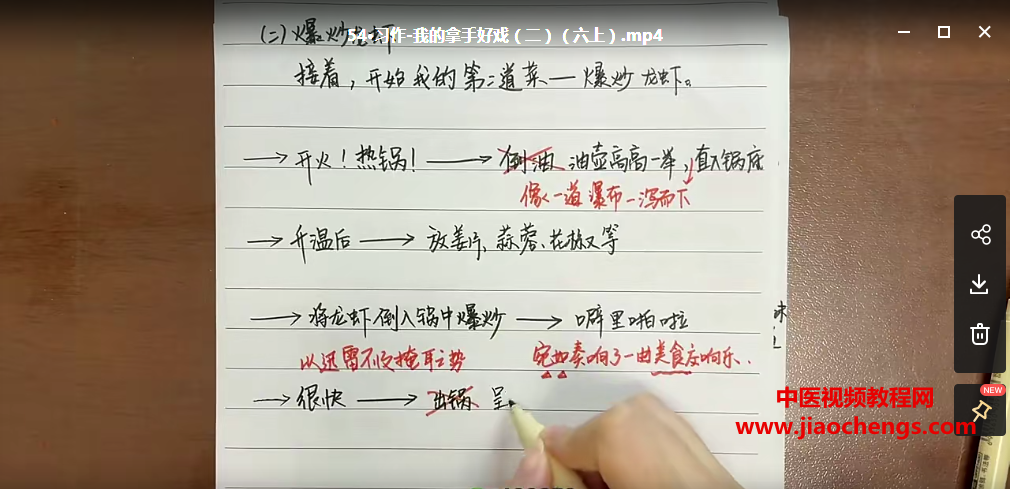 54-习作-我的拿手好戏（二）（六上）.mp4
（二）爆炒龙虾
接着，开始我的第二道菜——爆炒龙虾。
→开火！热锅！→倒油 油壶高高一举，直入锅底
像一道瀑布一泻而下
→升温后→放姜片、蒜蓉、花椒叉等
→将龙虾倒入锅中爆炒→噼里啪啦
味
以迅雷不及掩耳之势 宛如奏响了一曲美食交响乐.
→很快→出锅 呈
NEW
中医视频教程网
www.jiaochengs.com